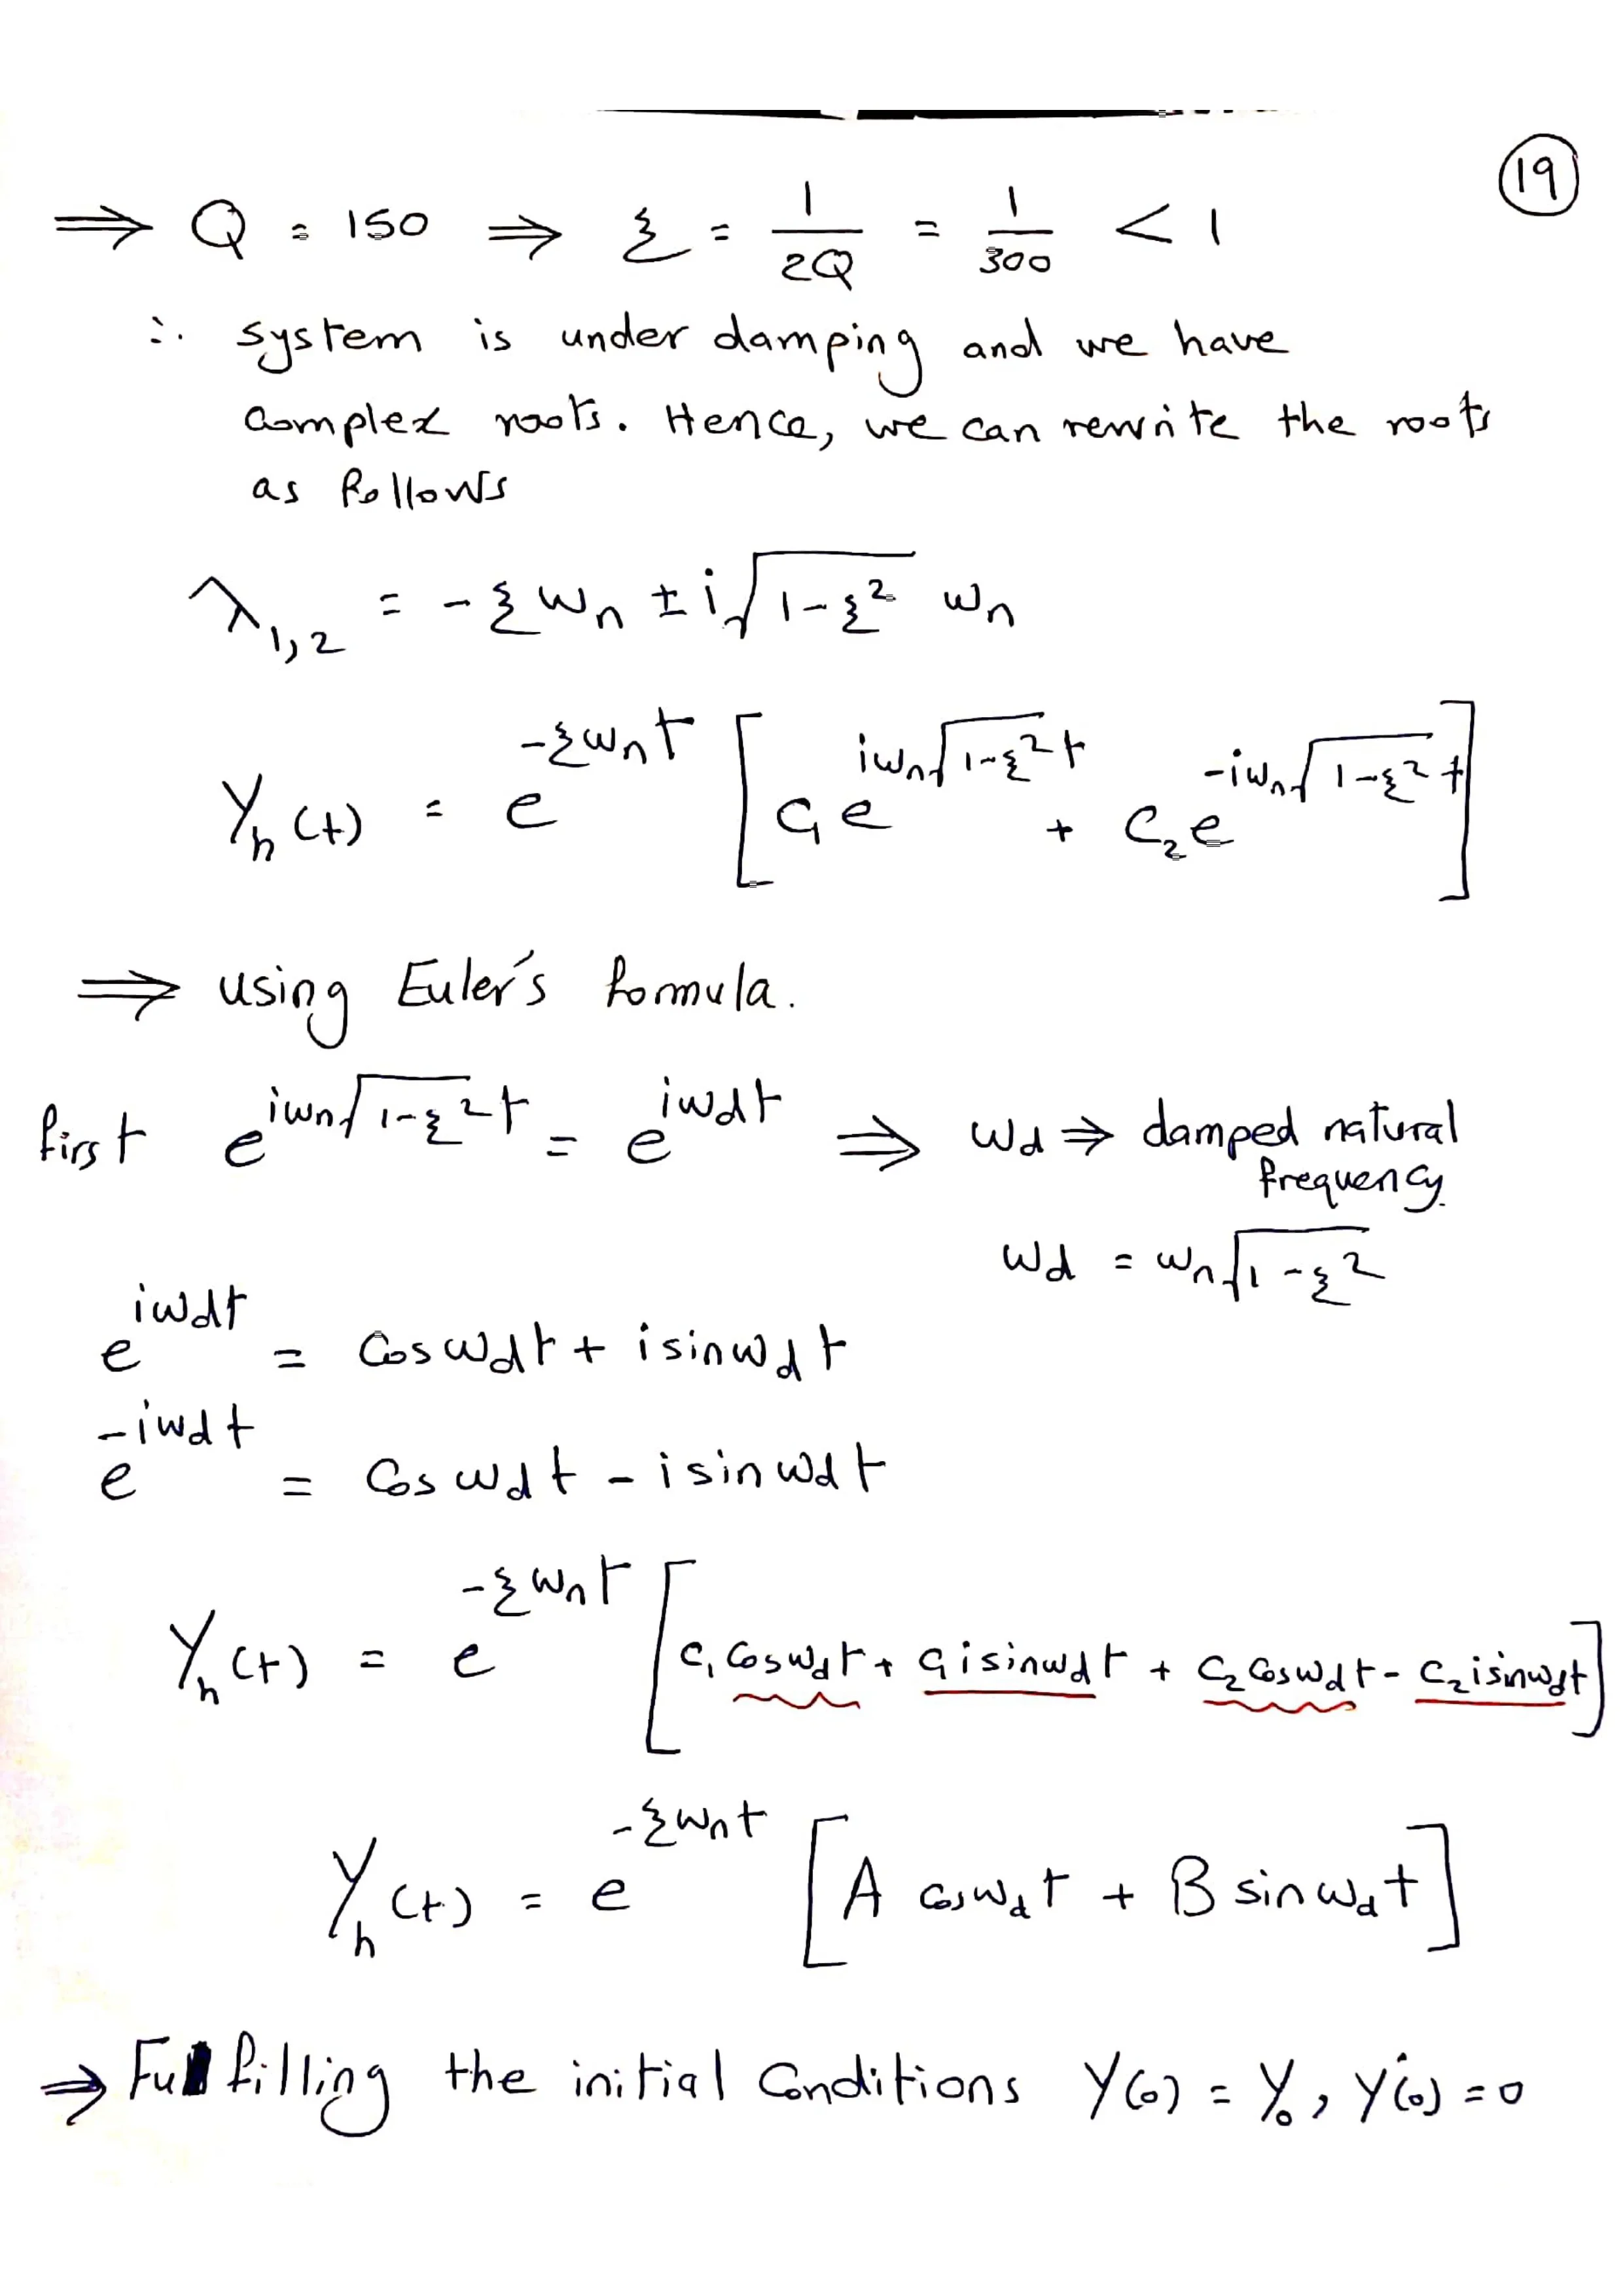 19
⇒ Q = 150 ⇒ ξ = 1/2Q = 1/300 < 1
∴ system is under damping and we have
complex roots. Hence, we can rewrite the roots
as follows
λ₁,₂ = -ξ wₙ ± i√(1-ξ²) wₙ
Yₕ(t) = e^(-ξwₙt) [C₁e^(iwₙ√(1-ξ²)t) + C₂e^(-iwₙ√(1-ξ²)t)]
⇒ using Euler's formula.
first e^(iwₙ√(1-ξ²)t) = e^(iw_dt) ⇒ w_d ⇒ damped natural
frequency.
w_d = wₙ√(1-ξ²)
e^(iw_dt) = Cos w_dt + i sin w_dt
e^(-iw_dt) = Cos w_dt - i sin w_dt
Yₕ(t) = e^(-ξwₙt) [C₁ Cos w_dt + C₁ i sin w_dt + C₂ Cos w_dt - C₂ i sin w_dt]
Yₕ(t) = e^(-ξwₙt) [A cos w_dt + B sin w_dt]
⇒ Fulfilling the initial Conditions Y(0) = Y₀, Ẏ(0) = 0